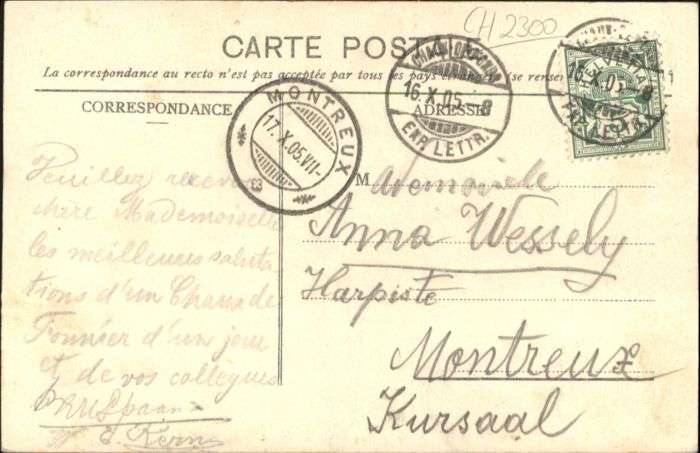 CH 2300
CARTE POSTALE
La correspondance au recto n'est pas acceptée par tous les pays étrangers (se renseigner
CORRESPONDANCE
ADRESSE
MONTREUX
17.X.05.VII-
CHAUX-DE-FONDS
16.X.05.-8
EXP. LETTR.
Veuillez recevoir
chère Mademoiselle
les meilleures saluta
tions d'un Chaux de
Fonnier d'un jour
et de vos collègues
Mademoiselle
Anna Wessely
Harpiste
Montreux
Kursaal